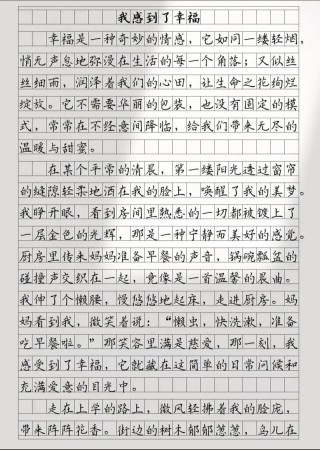 我感到了幸福
幸福是一种奇妙的情感，它如同一缕轻烟，
悄无声息地弥漫在生活的每一个角落；又似丝
丝细雨，润泽着我们的心田，让生命之花绚烂
绽放。它不需要华丽的包装，也没有固定的模
式，常常在不经意间降临，给我们带来无尽的
温暖与甜蜜。
在某个平常的清晨，第一缕阳光透过窗帘
的缝隙轻柔地洒在我的脸上，唤醒了我的美梦。
我睁开眼，看到房间里熟悉的一切都被镀上了
一层金色的光辉，那是一种宁静而美好的感觉。
厨房里传来妈妈准备早餐的声音，锅碗瓢盆的
碰撞声交织在一起，竟像是一首温馨的晨曲。
我伸了个懒腰，慢悠悠地起床，走进厨房。妈
妈看到我，微笑着说：“懒虫，快洗漱，准备
吃早餐啦。”那笑容里满是慈爱，那一刻，我
感受到了幸福，它就藏在这简单的日常问候和
充满爱意的目光中。
走在上学的路上，微风轻拂着我的脸庞，
带来阵阵花香。街边的树木郁郁葱葱，鸟儿在